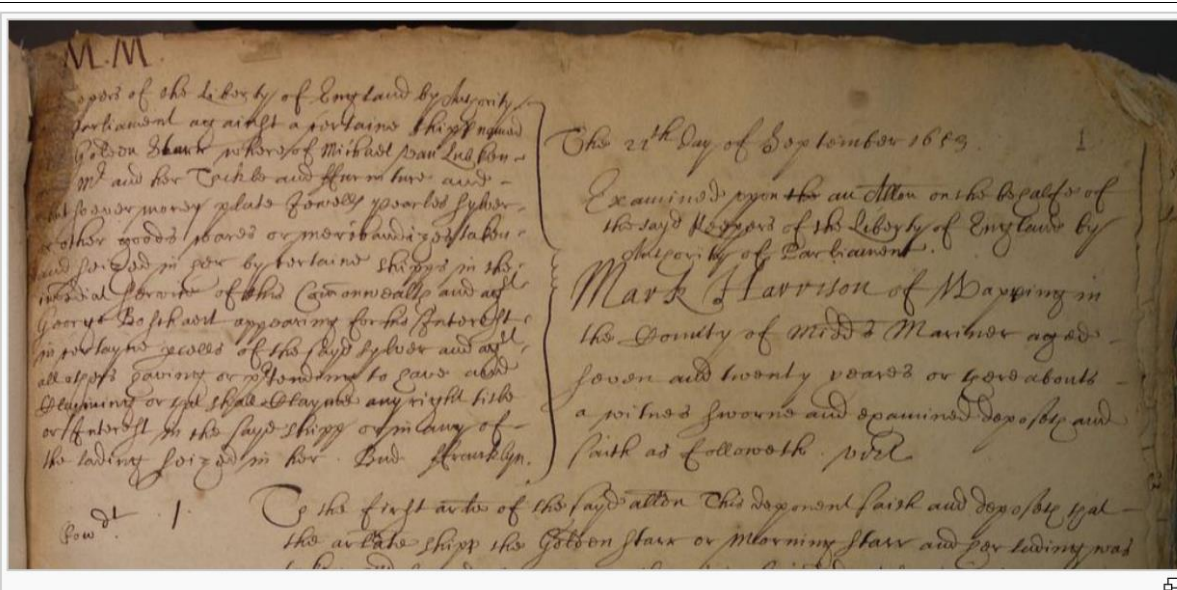 M. M.
opers of the Liberty of England by Authority
Parliament against a certaine shipp named
Golden Starr whereof Michael Van Lubken
Mr and her Tackle and ffurniture and
whatsoever money plate Jewells pearles sylver
other goods wares or merchandizes taken
and seized in her by certaine shipps in the
imediat service of this Comonwealth and agt
George Boschaert appearing for his Interest
in certayne pcells of the sayd sylver and agt
all others having or ptending to have and
Clayming or yt shall Clayme any right title
or Interest in the sayd shipp or in any of
the lading seized in her. Bud ffrancklyn.
The 21th day of September 1653.
1
Examined upon the an Allon on the behalfe of
the sayd Keepers of the Liberty of England by
Authority of Parliament.
Mark Harrison of Wapping in
the County of Midds Mariner aged
seven and twenty yeares or thereabouts
a witnes sworne and examined deposeth and
saith as followeth. vizt
dt
1
To the first arle of the sayd allon This deponent saith and deposeth that
the arlate shipp the Golden Starr or Morning Starr and her lading was